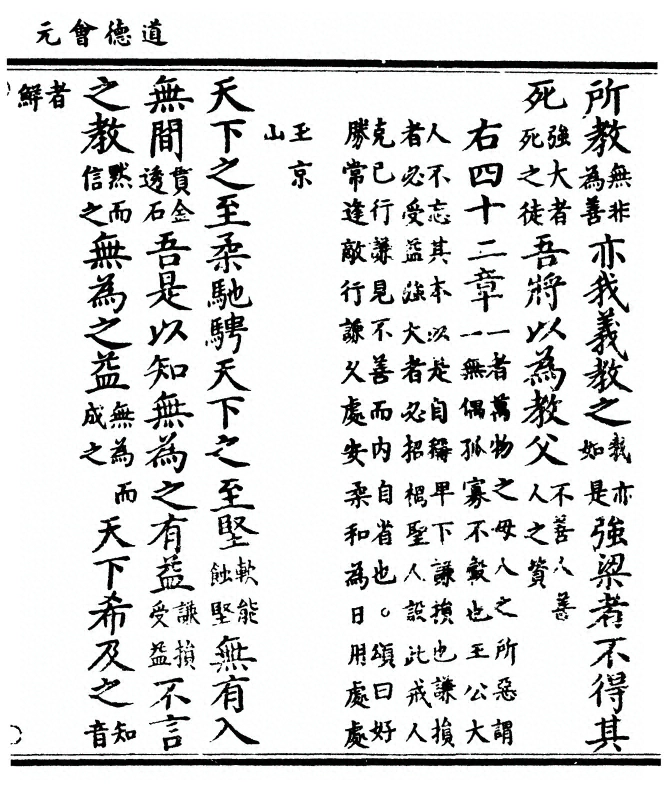 道德會元
所教無非為善亦我義教之我亦如是強梁者不得其
死強大者死之徒吾將以為教父不善人善人之資
右四十二章一者萬物之母人之所惡謂一無偶孤寡不穀也王公大
人不忘其本以是自稱卑下謙損也謙損
者必受益強大者必招禍聖人設此戒人
克已行謙見不善而內自省也。頌曰好
勝常逢敵行謙久處安柔和為日用處處
玉京山
天下之至柔馳騁天下之至堅軟能蝕堅無有入
無間貫金透石吾是以知無為之有益謙損受益不言
之教默而信之無為之益無為而成之天下希及之知音
者鮮